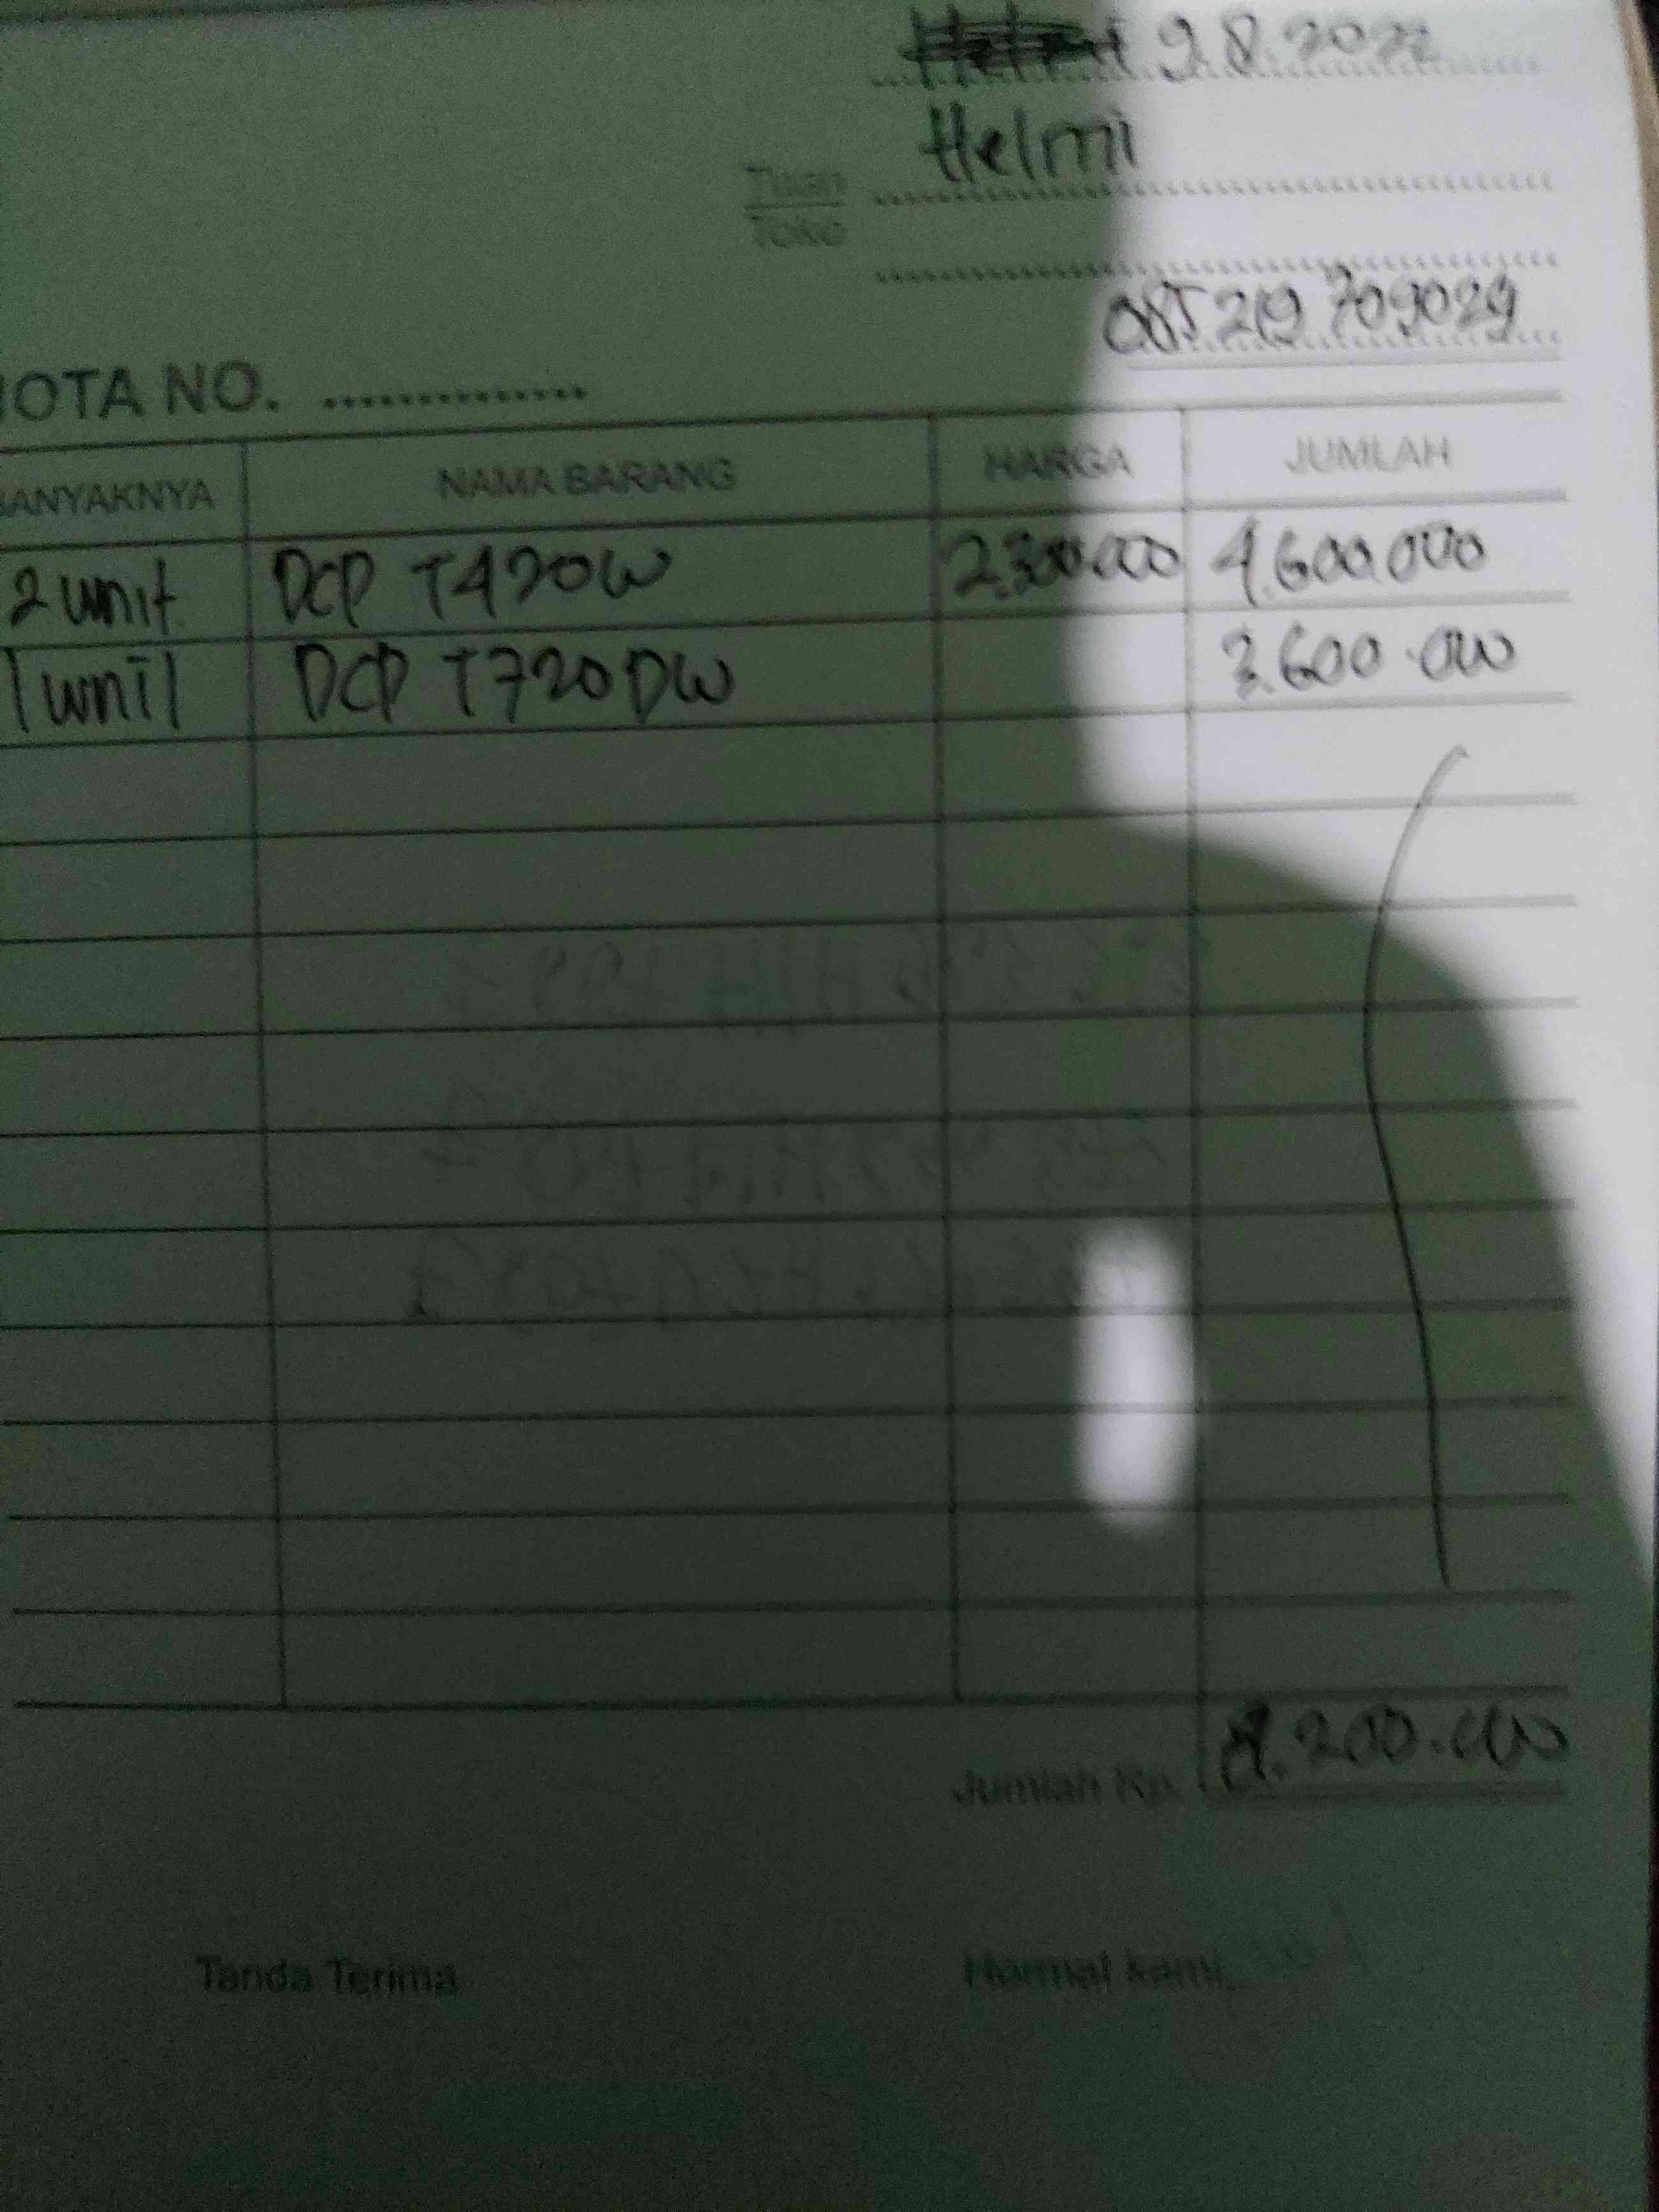 9.8.2022
Tuan Helmi
Toko
085219709029
NOTA NO. ..............
BANYAKNYA NAMA BARANG HARGA JUMLAH
2 unit DCP T420W 2.300.000 4.600.000
1 unit DCP T720DW 3.600.000
Jumlah Rp. 8.200.000
Tanda Terima Hormat kami,